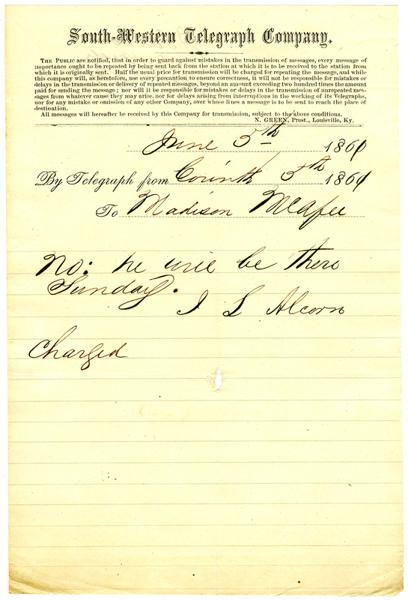 South-Western Telegraph Company.
THE PUBLIC are notified, that in order to guard against mistakes in the transmission of messages, every message of
importance ought to be repeated by being sent back from the station at which it is to be received to the station from
which it is originally sent. Half the usual price for transmission will be charged for repeating the message, and while
this company will, as heretofore, use every precaution to ensure correctness, it will not be responsible for mistakes or
delays in the transmission or delivery of repeated messages, beyond an amount exceeding two hundred times the amount
paid for sending the message; nor will it be responsible for mistakes or delays in the transmission of unrepeated mes-
sages from whatever cause they may arise, nor for delays arising from interruptions in the working of its Telegraphs,
nor for any mistake or omission of any other Company, over whose lines a message is to be sent to reach the place of
destination.
All messages will hereafter be received by this Company for transmission, subject to the above conditions.
N. GREEN, Prest., Louisville, Ky.
June 5th 1861
By Telegraph from Corinth 5th 1861
To Madison McAfee
No: he will be there
Sunday.
J L Alcorn
Charged